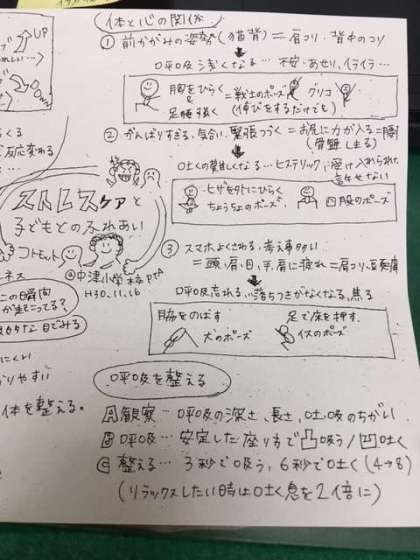 UP
Down
体と心の関係
① 前かがみの姿勢(猫背) = 肩コリ・背中のコリ
呼吸浅くなる… 不安・あせり、イライラ…
胸をひらく
&
足腰強く
=戦士のポーズ
グリコ
(伸びをするだけでも)
② がんばりすぎる、気合い、緊張つづく = お尻に力が入る
(骨盤しまる)
吐くの難しくなる… ヒステリック、受け入れられず
ヒザを外にひらく
ちょうちょのポーズ
四股のポーズ
ストレスケアと
子どもとのふれあい
コトモット
@中津小学校PTA
H30.11.16
③ スマホよくされる、考え事多い
= 頭、肩、目、手、肩に疲れ = 肩コリ・頭痛
呼吸乱れる、落ちつきがなくなる、焦る
脇をのばす
犬のポーズ
足で床を押す
イスのポーズ
呼吸を整える
Ⓐ 観察… 呼吸の深さ、長さ、吐・吸のちがい
Ⓑ 呼吸… 安定した座り方で凸吸う/凹吐く
Ⓒ 整える… 3秒で吸う、6秒で吐く (4→8)
(リラックスしたい時は吐く息を2倍に)
体を整える。